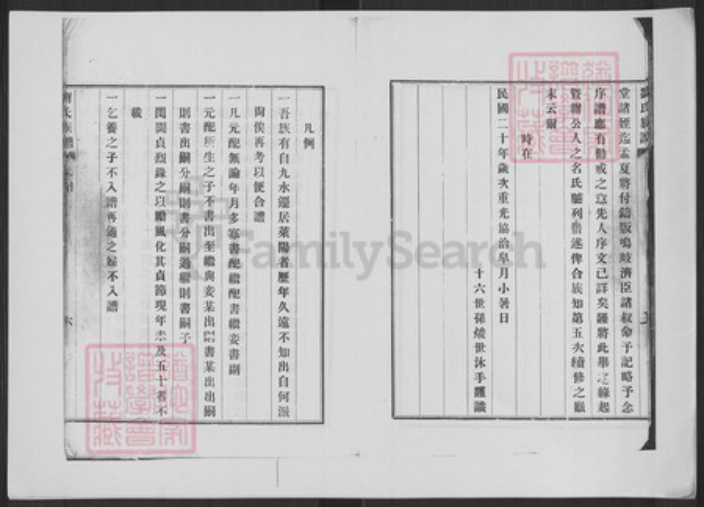 劉氏族譜
堂諸姪迄孟夏將付鉛版鳴岐濟臣諸叔命予記略予念
序譜應有勸戒之意先人序文已詳矣謹將此舉之緣起
暨辦公人之名氏臚列備述俾合族知第五次續修之巔
末云爾
時在
民國二十年歲次重光協洽皐月小暑日
十六世孫 世沐手謹識
凡例
一吾族有自九水遷居萊陽者歷年久遠不知出自何派
尚俟再考以便合譜
一凡元配無論年月多寡書配繼配書繼妾書副
一元配所生之子不書出至繼與妾某出則書某出出嗣
則書出嗣分嗣則書分嗣過繼則書嗣子
一閨閫貞烈錄之以勵風化其貞節現年未及五十者不
載
一乞養之子不入譜再過之婦不入譜
劉氏族譜
六
FamilySearch